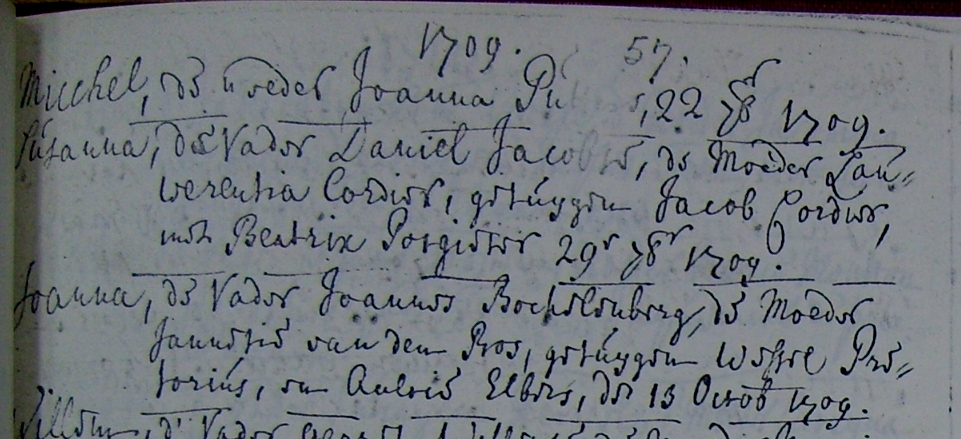 1709. 57.
Micchel, de moeder Joanna Pu 22 7br 1709.
Susanna, de Vader Daniel Jacobse, de Moeder Lau-
werentia Cordier, getuygen Jacob Cordier,
met Beatrix 29e 7br 1709.
Joanna, de Vader Joannes Bocheldenberg, de Moeder
Jannetie van den Bos, getuygen Wessel Pre-
torius, en Aeltie Elbers, den 13 Octob 1709.
Willem, d' Vader